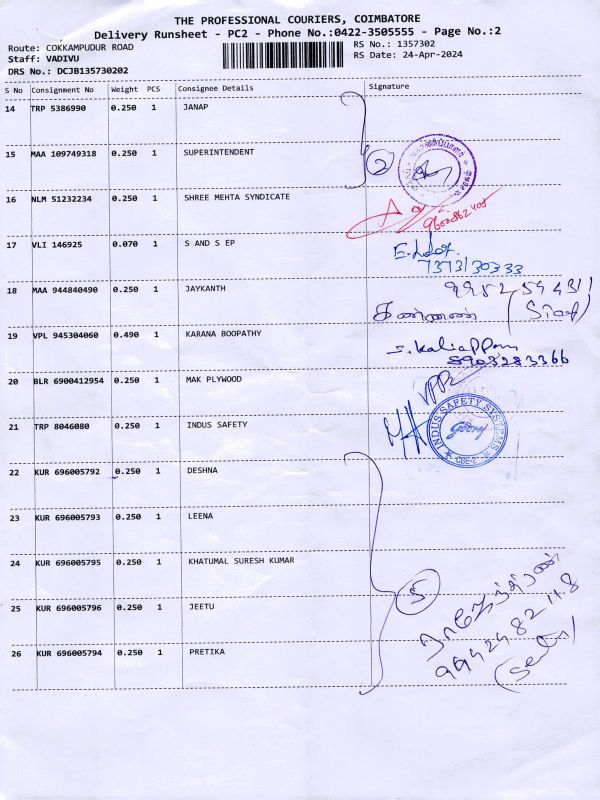 THE PROFESSIONAL COURIERS, COIMBATORE
Delivery Runsheet - PC2 - Phone No.:0422-3505555 - Page No.:2
Route: COKKAMPUDUR ROAD
Staff: VADIVU
DRS No.: DCJB135730202
RS No.: 1357302
RS Date: 24-Apr-2024
S No Consignment No Weight PCS Consignee Details Signature
14 TRP 5386990 0.250 1 JANAP
15 MAA 109749318 0.250 1 SUPERINTENDENT
2
16 NLM 51232234 0.250 1 SHREE MEHTA SYNDICATE
17 VLI 146925 0.070 1 S AND S EP
7373130333
18 MAA 944840490 0.250 1 JAYKANTH
9952594311
கண்ணன் (Staff)
19 VPL 945304060 0.490 1 KARANA BOOPATHY
S. Kaliappan
5903283366
20 BLR 6900412954 0.250 1 MAK PLYWOOD
21 TRP 8046080 0.250 1 INDUS SAFETY
INDUS SAFETY SYSTEMS
Godrej
CBE-2
22 KUR 696005792 0.250 1 DESHNA
23 KUR 696005793 0.250 1 LEENA
24 KUR 696005795 0.250 1 KHATUMAL SURESH KUMAR
25 KUR 696005796 0.250 1 JEETU
5
26 KUR 696005794 0.250 1 PRETIKA
99424 82118